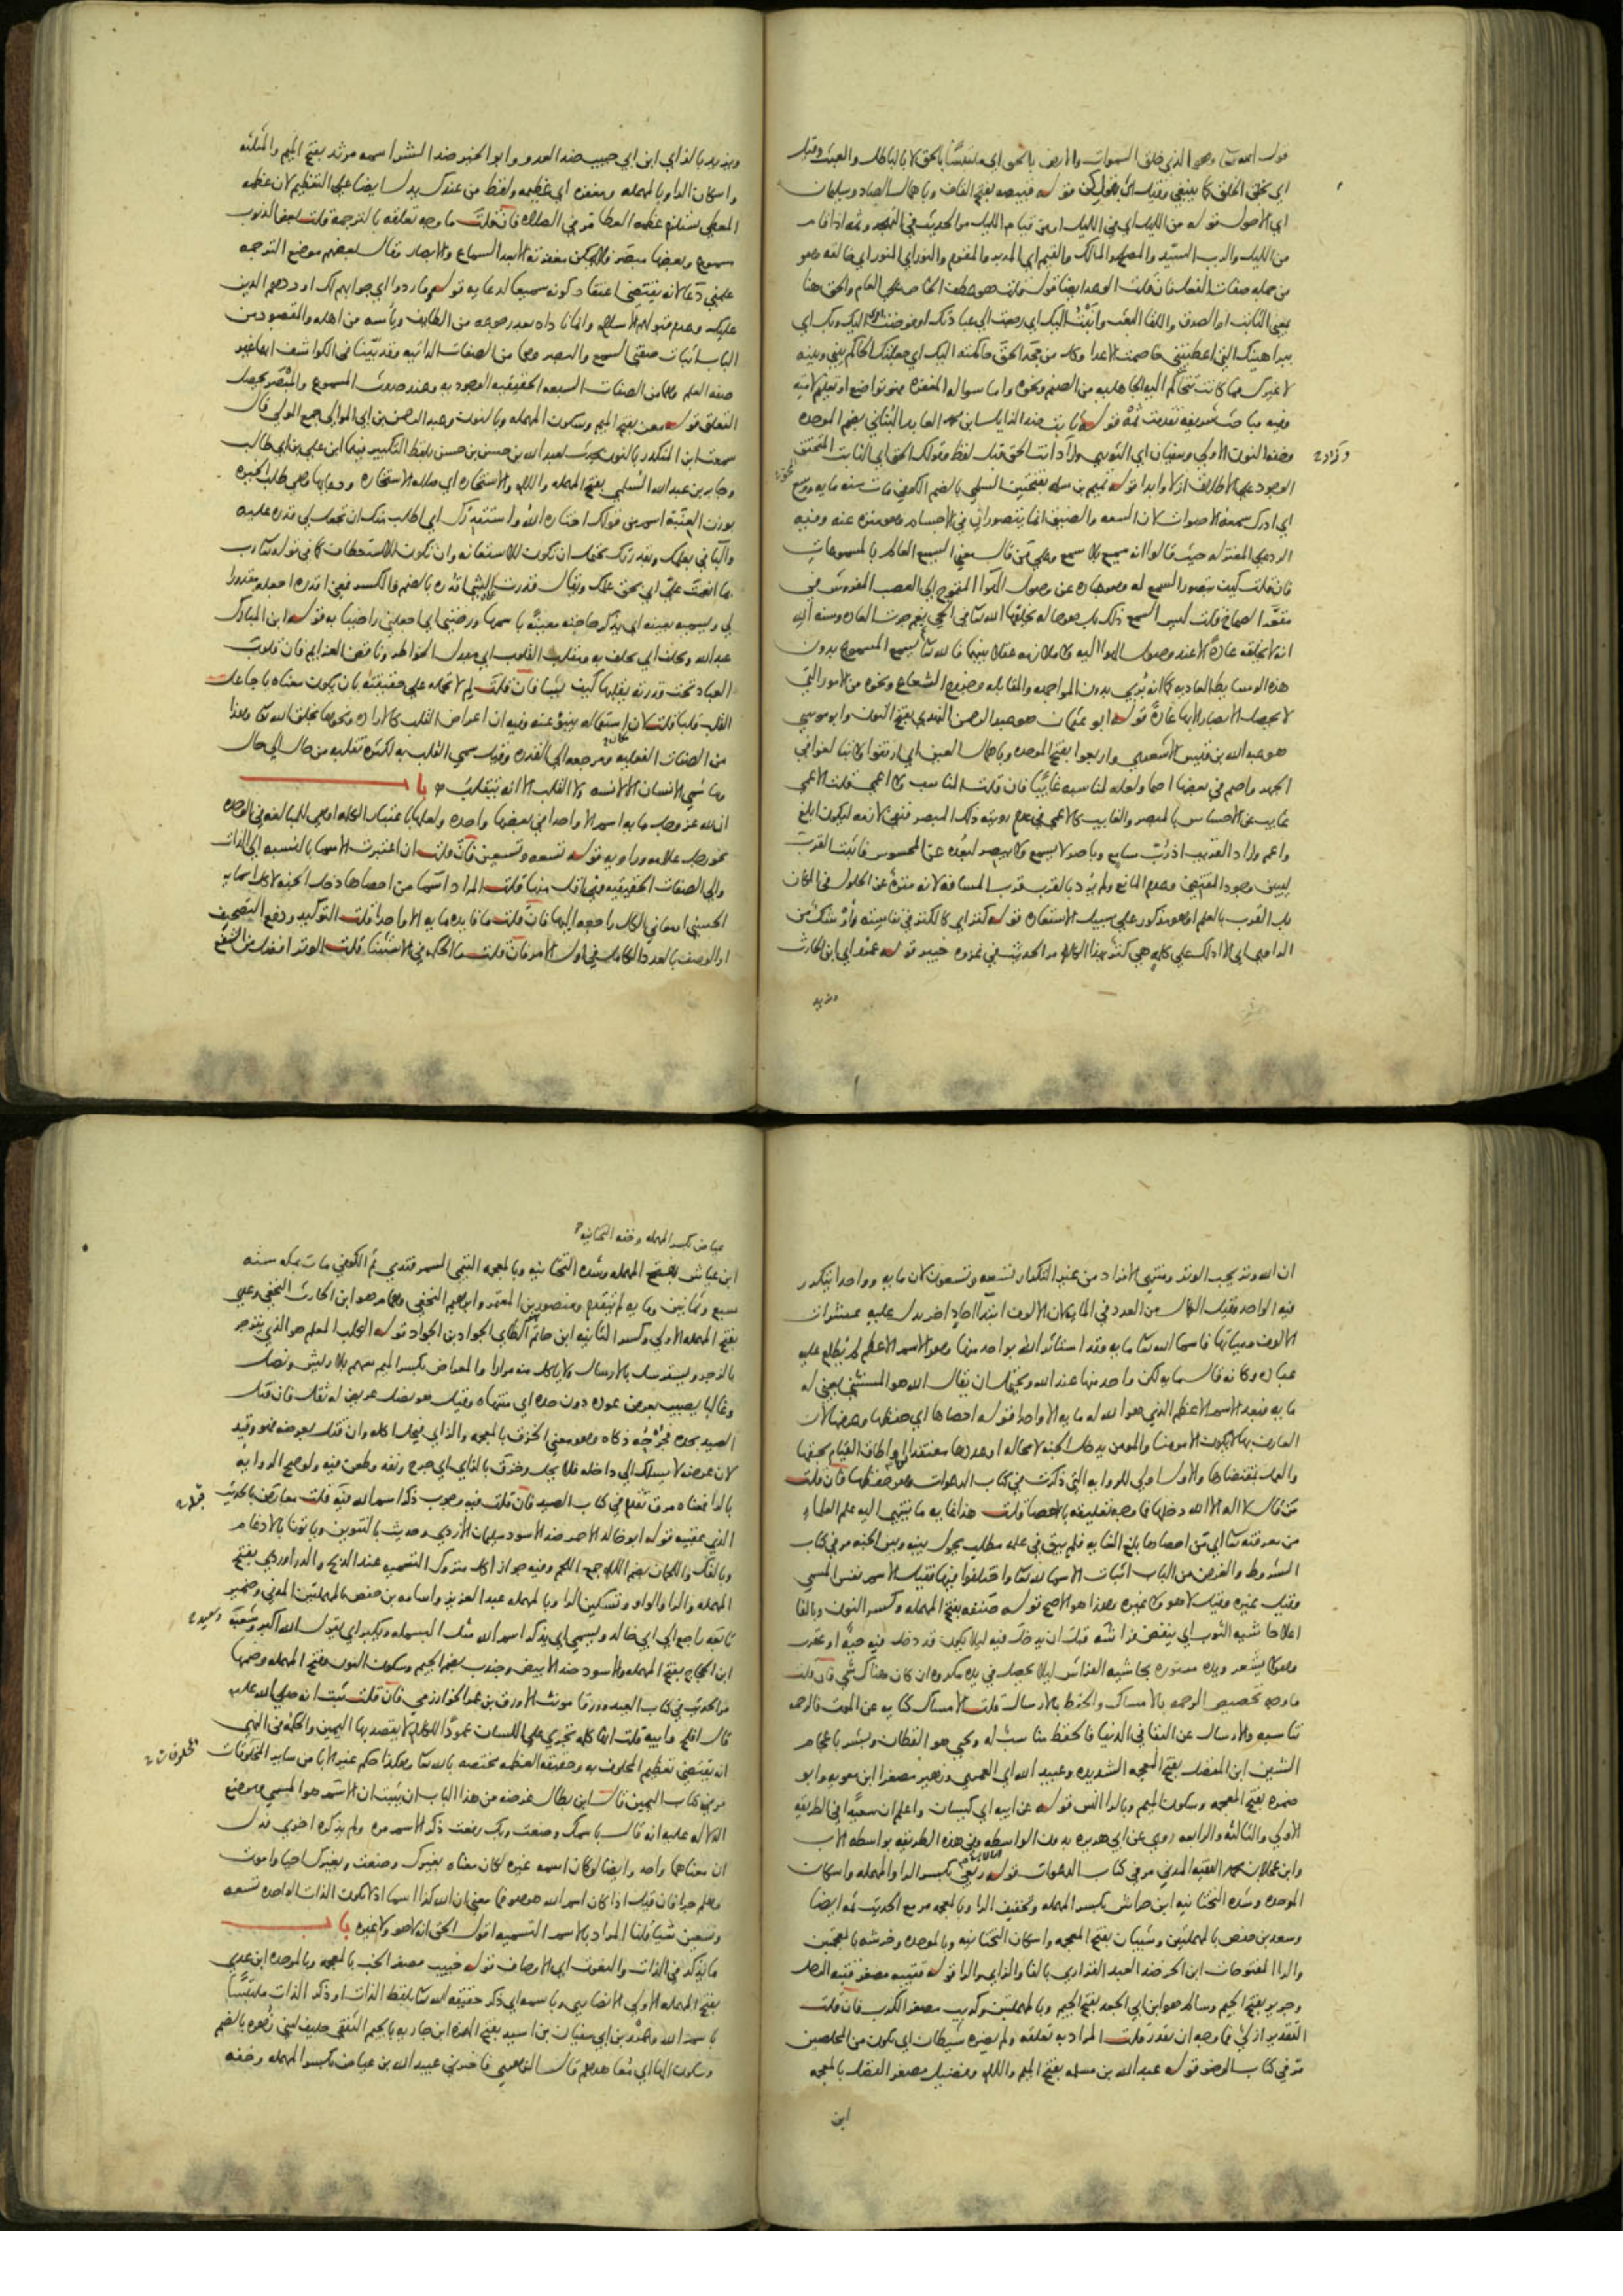 قوله تعالى وهو الذي خلق السموات والارض بالحق اي متلبسا بالحق لا بالباطل والعبث وقيل
اي بحق الخلق كما ينبغي وقيل اي بقول كن قوله قبيصة بفتح القاف وباهمال الصاد وسليمان
اي الاحول قوله من الليل اي في الليل او من قيام الليل مر الحديث في التهجد وثمة اذا قام
من الليل والرب السيد والمصلح والمالك والقيم اي المدبر والمقوم والنور اي المنور اي خالقه فهو
من جملة صفات الفعل فان قلت الوعد ايضا قول قلت هو عطف الخاص على العام والحق هنا
بمعنى الثابت او الصدق واللقاء البعث وانبت اليك اي رجعت الى عبادتك او فوضت اليك وبك اي
ببراهينك التي اعطيتني خاصمت الاعدا وكل من جحد الحق حاكمته اليك اي جعلتك الحاكم بيني وبينه
لا غيرك مما كانت تتحاكم اليه الجاهلية من الصنم ونحوه واما سواله المغفرة فهو تواضع او تعليم لامته
وفيه مباحث شريفة تقدمت ثمة قوله ثابت ضد الزايل ابن محمد العابد البناني بضم الموحدة
وخفة النون الاولى وسفيان اي الثوري وزاد انت الحق قبل لفظ وقولك الحق اي الثابت المتحقق
الوجود على الاطلاق ازلا وابدا قوله تميم بن سلمة بفتحتين السلمي بالضم الكوفي مات سنة ماية ووسع
اي ادرك سمعه الاصوات لان السعة والضيق انما يتصوران في الاجسام وهو منزه عنه وفيه
الرد على المعتزلة حيث قالوا انه سميع بلا سمع وعلى من قال معنى السميع العالم بالمسموعات
فان قلت كيف يتصور السمع له وهو عبارة عن وصول الهوا المتموج الى العصب المفروش في
مقعر الصماخ قلت ليس السمع ذلك بل هو حالة يخلقها الله تعالى في الحي نعم جرت العادة وسنة الله
انه لا يخلقه عادة الا عند وصول الهوا اليه ولا ملازمة عقلا بينهما فالله تعالى يسمع المسموع بدون
هذه الوسايط العادية كما انه يرى بدون المواجهة والمقابلة وخروج الشعاع ونحوه من الامور التي
لا يحصل الابصار الا بها عادة قوله ابو عثمان هو عبد الرحمن النهدي بفتح النون وابو موسى
هو عبد الله بن قيس الاشعري واربعوا بفتح الموحدة وباهمال العين اي ارفقوا ولا تبالغوا في
الجهد واصم في بعضها اصما ولعله لمناسبة غايبا فان قلت المناسب ولا اعمى قلت الاعمى
غايب عن الاحساس بالمبصر والغايب كالاعمى في عدم رويته ذلك المبصر فنفى لازمه ليكون ابلغ
واعم وزاد القريب اذ رب سامع وباصر لا يسمع ولا يبصر لبعده عن المحسوس فاثبت القرب
ليبين وجود المقتضى وعدم المانع ولم يرد بالقرب قرب المسافة لانه منزه عن الحلول في المكان
بل القرب بالعلم او هو مذكور على سبيل الاستعارة قوله كنز اي كالكنز في نفاسته
الراوي اي الا ادلك على كلمة هي كنز بهذا الكلام مر الحديث في غزوة خيبر قوله عمرو اي ابن الحارث
ويزيد
ويزيد بالزاي ابن ابي حبيب ضد العدو وابو الخير ضد الشر اسمه مرثد بفتح الميم والمثلثة
واسكان الرا وبالمهملة ومغفرة اي عظيمة ولفظ من عندك يدل ايضا على التعظيم لان عظمة
المعطي تستلزم عظمة العطا مر في الصلاة فان قلت ما وجه تعلقه بالترجمة قلت بعض الذنوب
مسموع وبعضها مبصر فلا يمكن مغفرته الا بعد السماع والابصار وقال بعضهم موضع الترجمة
علمني دعا لانه يقتضي اعتقاد كونه سميعا لدعايه قوله وما ردوا اي جوابهم لك او ردهم الدين
عليك وعدم قبولهم الاسلام وانما ناداه بعد رجوعه من الطايف وياسه من اهله والمقصود من
الباب اثبات صفتي السمع والبصر وهما من الصفات الذاتية وقد بينا في الكواشف انهما غير
صفة العلم وهما من الصفات السبعة الحقيقية الوجودية وعند حدوث المسموع والمبصر يحصل
التعلق قوله معن بفتح الميم وسكون المهملة وبالنون وعبد الرحمن بن ابي الموالي جمع المولى قال
سمعت ابن المنكدر بالنون يحدث لعبد الله بن حسن بن حسن بلفظ التكبير فيهما ابن علي بن ابي طالب
وجابر بن عبد الله السلمي بفتح المهملة واللام والاستخارة اي صلاة الاستخارة ودعاها وهي طلب الخيرة
بوزن العنبة اسم من قولك اختاره الله واستقدرك اي اطلب منك ان تجعل لي قدرة عليه
والبا في بعلمك وبقدرتك يحتمل ان تكون للاستعانة وان تكون للاستعطاف كما في قوله تعالى رب
بما انعمت علي اي بحق علمك ويقال قدرت الشي اقدره بالضم والكسر فمعنى اقدره اجعله مقدورا
لي ويسميه بعينه اي يذكر حاجته معينة باسمها ورضني اي اجعلني راضيا به قوله ابن المبارك
عبد الله ويحلف اي يحلف به ومقلب القلوب اي مبدل الخواطر وناقض العزايم فان قلوب
العباد تحت قدرته يقلبها كيف يشا فان قلت لم لا تحمله على حقيقته بان يكون معناه يا جاعل
القلب قلبا قلت لان استعماله ينبو عنه وفيه ان اعراض القلب كالارادة ونحوها بخلق الله تعالى وهذا
من الصفات الفعلية ومرجعه الى القدرة وقيل سمي القلب به لكثرة تقلبه من حال الى حال
وما سمي الانسان الا لانسه ولا القلب الا انه يتقلب باب
ان لله عز وجل ماية اسم الا واحدا في بعضها واحدة ولعلها باعتبار الكلمة او هي للمبالغة في الوحدة
نحو رجل علامة وراوية قوله تسعة وتسعين فان قلت ان اعتبرت الاسما بالنسبة الى الذات
والى الصفات الحقيقية فهي اقل منها قلت المراد اسما من احصاها دخل الجنة لا كل اسمايه
الحسنى او معاني الكل راجعة اليها فان قلت ما فايدة ماية الا واحدا قلت التوكيد ودفع التصحيف
او الوصف بالعدد الكامل في اول الامر فان قلت ما الحكمة في الاستثنا قلت الوتر افضل من الشفع
ان الله وتر يحب الوتر ومنتهى الافراد من غير التكرار تسعة وتسعون لان ماية وواحدا يتكرر
فيه الواحد وقيل الكمال من العدد في الماية لان الالوف ابتدا احاد اخر يدل عليه عشرات
الالوف وميئاتها فاسما الله تعالى ماية وقد استاثر الله بواحد منها وهو الاسم الاعظم لم يطلع عليه
عباده وكانه قال ماية لكن واحد منها عند الله ويحتمل ان يقال الله هو المستثنى يعني له
ماية فبعد الاسم الاعظم الذي هو الله له ماية الا واحدا قوله احصاها اي حفظها وعرفها لان
العارف بها لا يكون الا مومنا والمومن يدخل الجنة لا محالة او عددها معتقدا لها او اطاق القيام بحقها
والعمل بمقتضاها والاول اولى للرواية التي ذكرت في كتاب الدعوات وهو حفظها فان قلت
من قال لا اله الا الله دخلها فما وجه تعليقه بالاحصا قلت هذا غاية ما ينتهي اليه علم العلما
من معرفته تعالى اي من احصاها بلغ الغاية فلم يبق في علمه مطلب يحول بينه وبين الجنة مر في كتاب
الشروط والغرض من الباب اثبات الاسما لله تعالى واختلفوا فيها فقيل الاسم نفس المسمى
وقيل غيره وقيل لا هو ولا غيره وهذا هو الاصح قوله صنفة بفتح المهملة وكسر النون وبالفا
اعلا حاشية الثوب اي ينفض فراشه قبل ان يدخل فيه ليلا يكون قد دخل فيه حية او عقرب
وهو لا يشعر ويده مستورة بحاشية الفراش ليلا يحصل في يده مكروه ان كان هناك شي فان قلت
ما وجه تخصيص الرحمة بالامساك والحفظ بالارسال قلت الامساك كناية عن الموت فالرحمة
تناسبه والارسال عن البقا في الدنيا فالحفظ مناسب له ويحيى هو القطان وبشر باعجام
الشين ابن المفضل بفتح المعجمة الشديدة وعبيد الله اي العمري وزهير مصغرا ابن معوية وابو
ضمرة بفتح المعجمة وسكون الميم وبالرا انس قوله عن ابيه اي كيسان واعلم ان سعيدا في الطريقة
الاولى والثالثة والرابعة روى عن ابي هريرة بدون الواسطة وفي هذه الطريقة بواسطة الاب
وابن عجلان محمد الفقيه المدني مر في كتاب الدعوات قوله ربعي بكسر الرا والمهملة واسكان
الموحدة وشدة التحتانية ابن حراش بكسر المهملة وتخفيف الرا وبالمعجمة مر مع الحديث ثمة ايضا
وسعد بن حفص بالمهملتين وشيبان بفتح المعجمة واسكان التحتانية وبالموحدة وخرشة بالمعجمتين
والرا المفتوحات ابن الحر ضد العبد الفزاري بالفا والزاي والرا قوله قتيبة مصغر قتبة الرحل
وجرير بفتح الجيم وسالم هو ابن ابي الجعد بفتح الجيم وبالمهملتين وكريب مصغر الكرب فان قلت
التقدير ازلي فما وجه ان يقدر قلت المراد به تعلقه ولم يضره شيطان اي يكون من المخلصين
مر في كتاب الوضو قوله عبد الله بن مسلمة بفتح الميم واللام وفضيل مصغر الفضل بالمعجمة
ابن
عياض بكسر المهملة وخفة التحتانية
ابن عياش بفتح المهملة وشدة التحتانية وبالمعجمة التيمي السمرقندي ثم الكوفي مات بمكة سنة
سبع وثمانين وماية لم يتقدم ومنصور بن المعتمر وابراهيم النخعي وهمام هو ابن الحارث النخعي وعدي
بفتح المهملة الاولى وكسر الثانية ابن حاتم الطائي الجواد بن الجواد قوله الكلب المعلم هو الذي ينزجر
بالزجر ويسترسل بالارسال ولا ياكل منه مرارا والمعراض بكسر الميم سهم بلا ريش ونصل
وغالبا يصيب بعرض عوده دون حده اي منتهاه وقيل هو نصل عريض له ثقل فان قتل
الصيد بحده فجرحه ذكاه وهو معنى الخزق بالمعجمة والزاي فيحل اكله وان قتل بعرضه فهو وقيد
لان عرضه لا يسلك الى داخله فلا يحل وخزق بالزاي اي جرح ونفذ وطعن فيه ولو صح الرواية
بالرا فمعناه مزق تقدم في كتاب الصيد فان قلت فيه وجوب ذكر اسم الله فيه قلت معارض بالحديث
الذي عقبه قوله ابو خالد الاحمر ضد الاسود سليمان الازدي وحديث بالتنوين وياتونا بالادغام
وبالفك واللحمان بضم اللام جمع اللحم وفيه جواز اكل متروك التسمية عند الذبح والدراوردي بفتح
المهملة والرا والواو وتسكين الرا وبالمهملة عبد العزيز واسامة بن حفص بالمهملتين المدني وضمير
تابعه راجع الى ابي خالد ويسمي اي يذكر اسم الله مثل البسملة ويكبر اي يقول الله اكبر وشعبة
ابن الحجاج بفتح المهملة والاسود ضد الابيض وجندب بضم الجيم وسكون النون وفتح المهملة وضمها
مر الحديث في كتاب العيد وورقا مونث الاورق بن عمر الخوارزمي فان قلت ثبت انه صلى الله عليه
قال افلح وابيه قلت انها كلمة تجري على اللسان عمودا للكلام لا يقصد بها اليمين والحكمة في النهي
انه يقتضي تعظيم المحلوف به وحقيقة العظمة مختصة بالله تعالى وهكذا حكم غير الابا من ساير المخلوقات
مر في كتاب اليمين قال ابن بطال غرضه من هذا الباب ان يثبت ان الاسم هو المسمى وموضع
الدلالة عليه انه قال باسمك وضعت وبك رفعت ذكر الاسم مرة ولم يذكره اخرى فدل
ان معناهما واحد وايضا لو كان اسمه غيره لكان معناه بغيرك وضعت وبغيرك احيا واموت
وهلم جرا فان قيل اذا كان اسم الله هو هو فما معنى ان لله كذا اسما اذ لا تكون الذات الواحدة تسعة
وتسعين شيا قلنا المراد بالاسم التسمية اقول الحق انه لا هو ولا غيره باب
ما يذكر في الذات والنعوت اي الاوصاف قوله خبيب مصغر الخب بالمعجمة وبالموحدة ابن عدي
بفتح المهملة الاولى الانصاري وباسمه اي ذكر حقيقة الله تعالى بلفظ الذات او ذكر الذات ملتبسا
باسم الله وعمرو بن ابي سفيان بن اسيد بفتح الهمزة ابن جارية بالجيم الثقفي حليف لبني زهرة بالضم
وسكون الها اي معاهدهم قال الزهري فاخبرني عبيد الله بن عياض بكسر المهملة وخفة